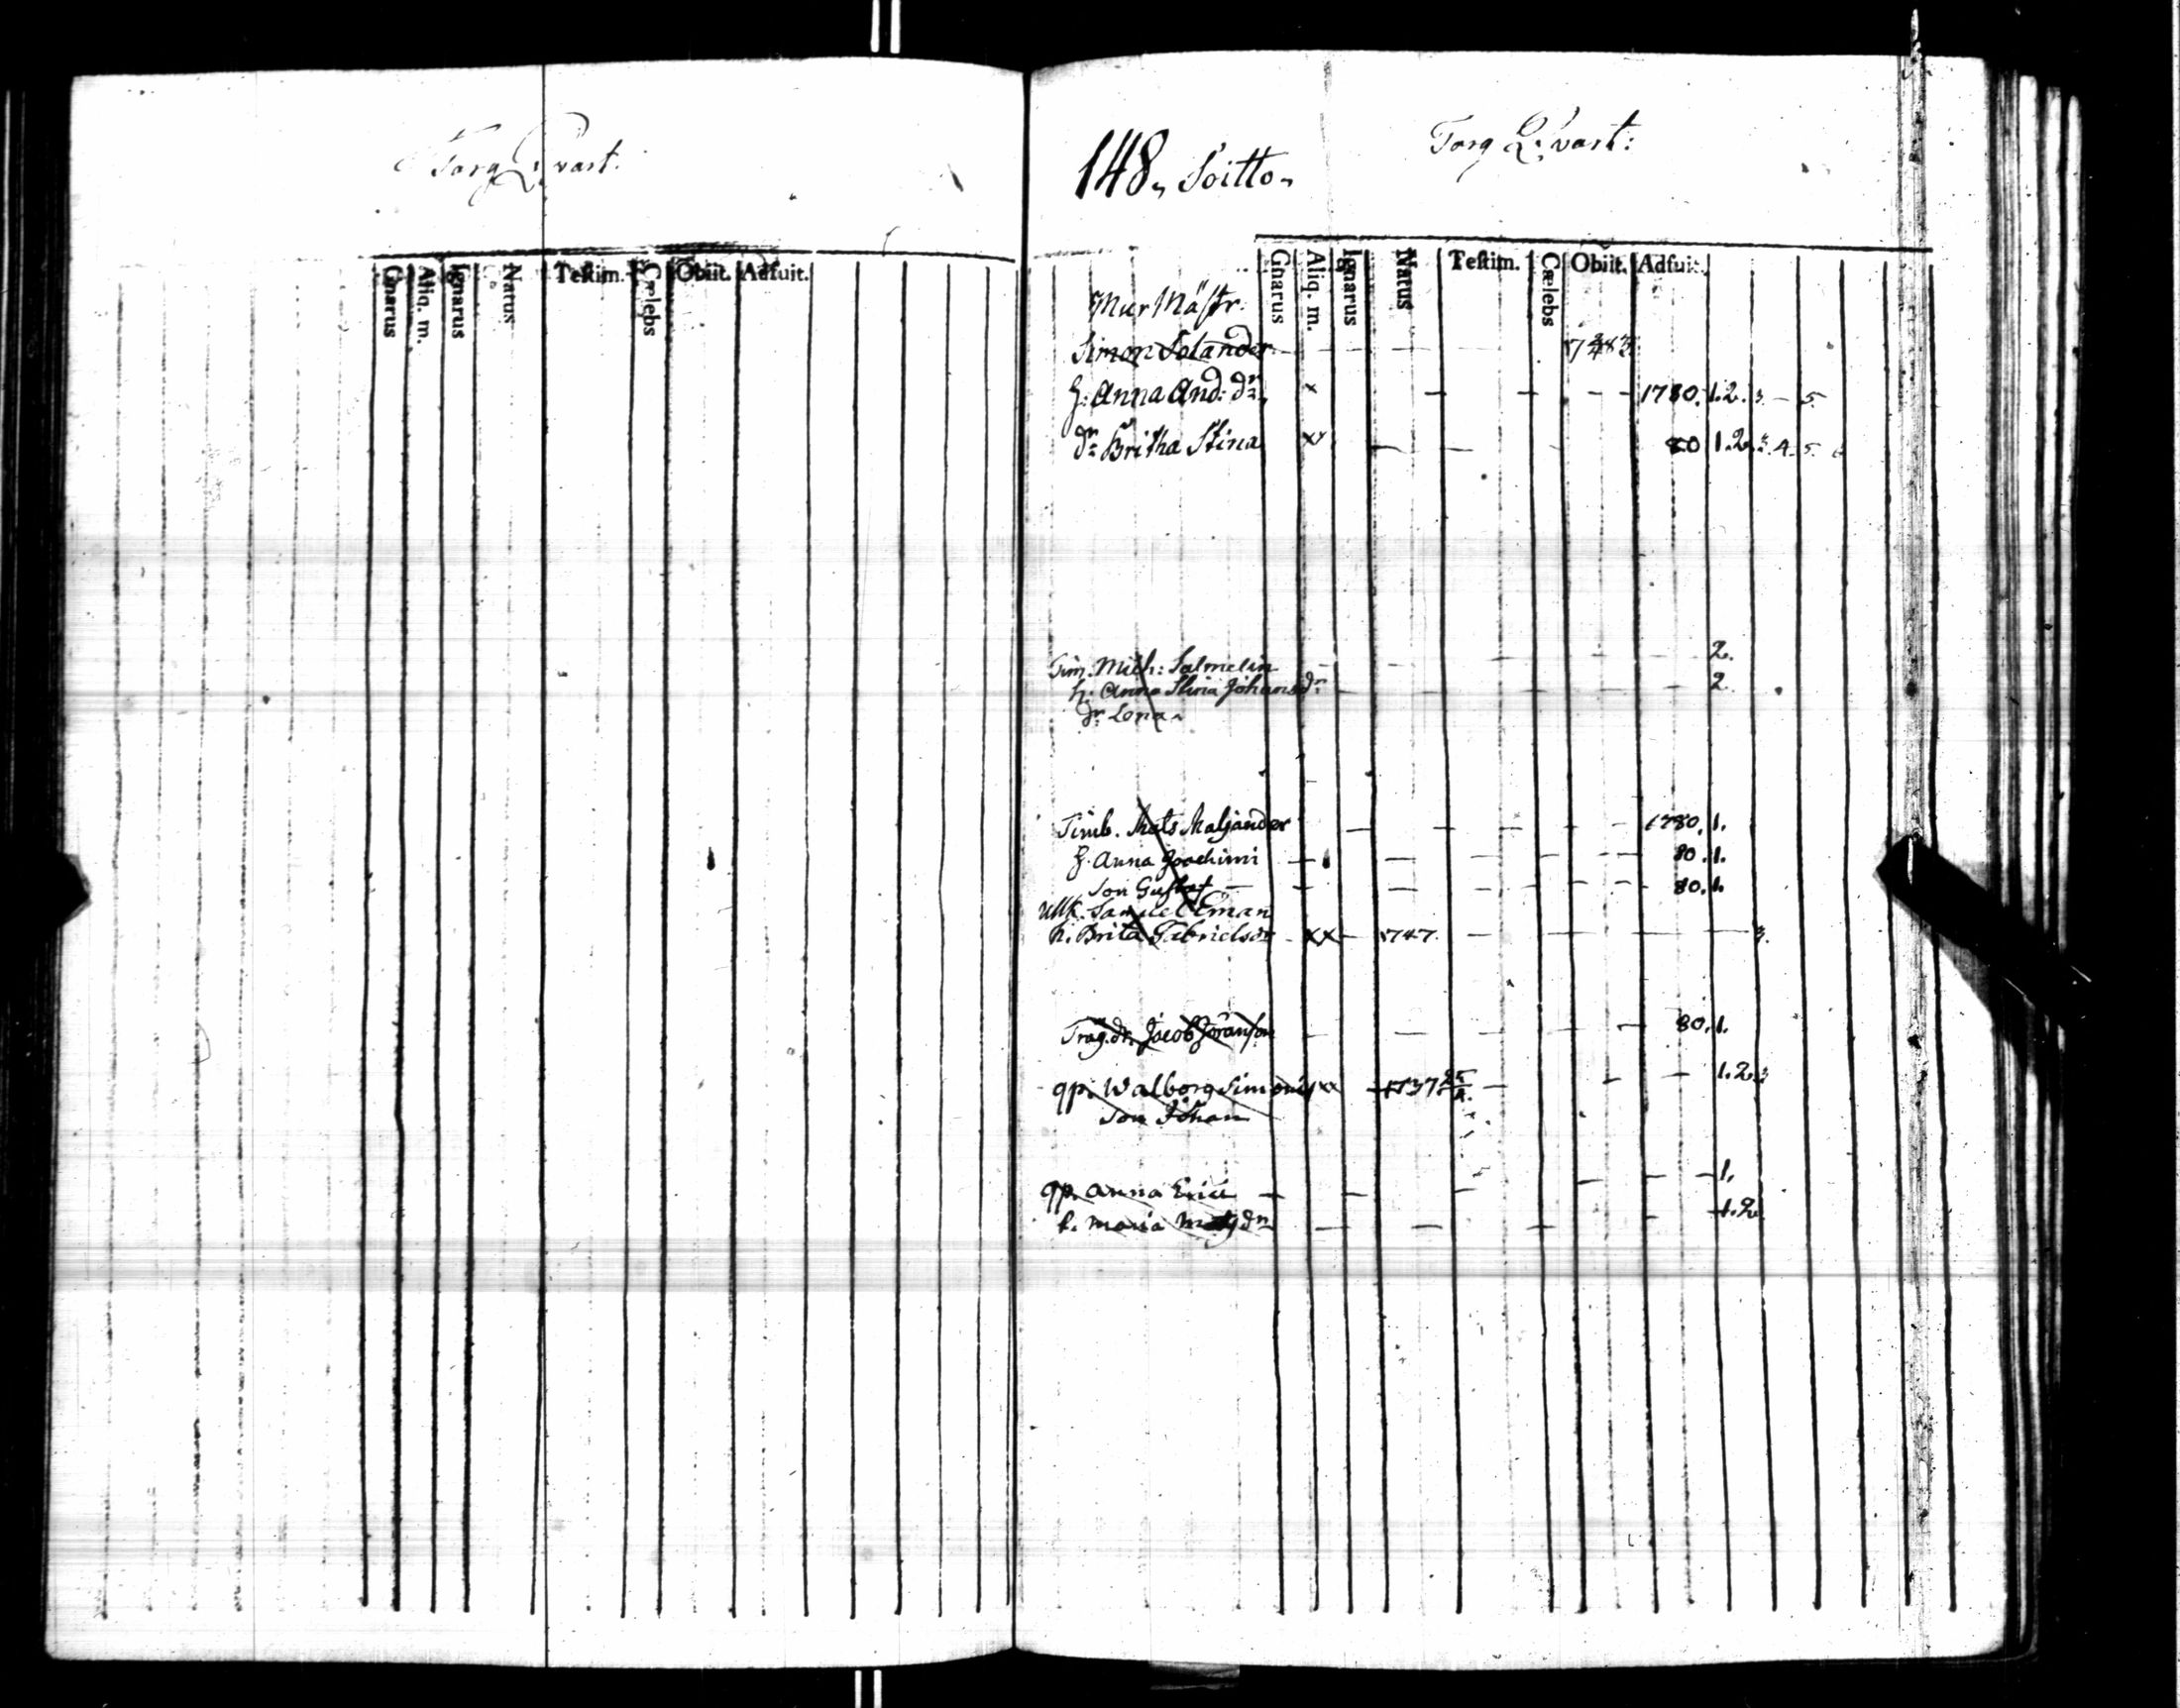 Torg Qvart.
Gnarus Aliq. m. Ignarus Natus Testim. Cælebs Obiit. Adfuit.
148. Soitto. Torg Qvart:
Gnarus Aliq. m. Ignarus Natus Testim. Cælebs Obiit. Adfuit.
Mur Mästr.
Simon Solander
h. Anna And: dr. x 1780. 1. 2. 3. – 5.
dr. Britha Stina xx 80 1. 2. 3. 4. 5. 6
Tim. Mich: Salmelin 2.
h. Anna Stina Johansdr. 2.
dr. Lona
Timb. Mats Maljander 1780. 1.
h. Anna Joachimi 80. 1.
Son Gustaf 80. 1.
Samuel Eman
h. Brita Gabrielsdr xx 1747. 3.
Träg.dr. Jacob Jöransson 80. 1.
qp. Walborg Simonis xx 1737 1. 2. 3
Son Johan
qp. Anna Erici 1.
h. Maria Matsdr 1. 2.